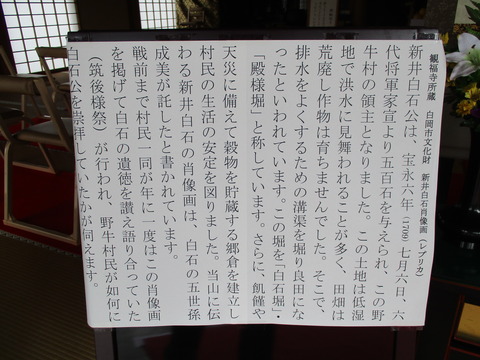 観福寺所蔵　白岡市文化財　新井白石肖像画（レプリカ）
新井白石公は、宝永六年（1709）七月六日、六
代将軍家宣より五百石を与えられ、この野
牛村の領主となりました。この土地は低湿
地で洪水に見舞われることが多く、田畑は
荒廃し作物は育ちませんでした。そこで、
排水をよくするための溝渠を堀り良田にな
ったといわれています。この堀を「白石堀」・
「殿様堀」と称しています。さらに、飢饉や
天災に備えて穀物を貯蔵する郷倉を建立し
村民の生活の安定を図りました。当山に伝
わる新井白石の肖像画は、白石の五世孫
成美が託したと書かれています。
戦前まで村民一同が年に一度はこの肖像画
を掲げて白石の遺徳を讃え語り合っていた
（筑後様祭）が行われ、野牛村民が如何に
白石公を崇拝していたかが伺えます。